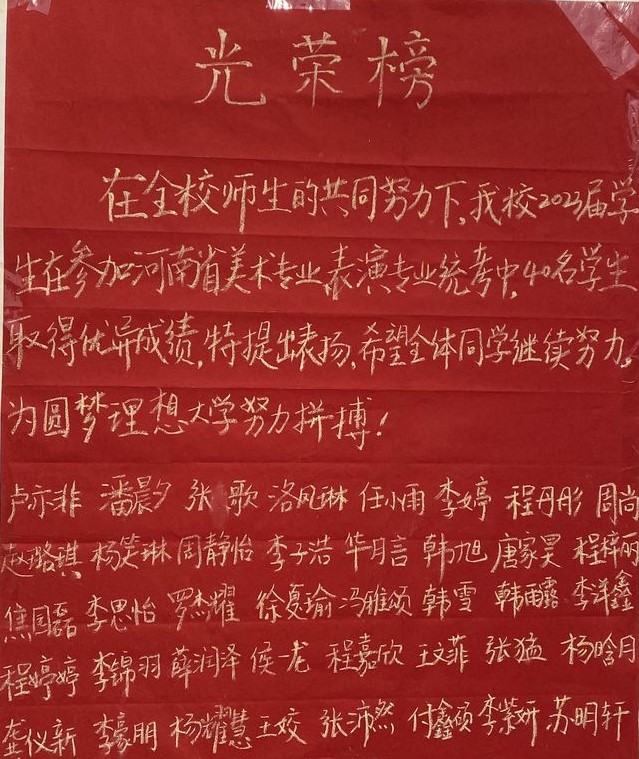 光荣榜
在全校师生的共同努力下,我校2023届学
生在参加河南省美术专业表演专业统考中,40名学生
取得优异成绩,特提出表扬,希望全体同学继续努力,
为圆梦理想大学努力拼搏!
卢亦非 潘晨夕 张歌 洛凤琳 任小雨 李婷 程丹彤 周尚
赵璐琪 杨笑琳 周静怡 李子浩 华月言 韩旭 唐家昊 程梓丽
焦国磊 李思怡 罗杰耀 徐夏瑜 冯雅颂 韩雪 韩雨露 李洋鑫
程婷婷 李锦羽 薛润泽 侯一龙 程嘉欣 王文菲 张猛 杨晗月
龚仪新 李豪朋 杨耀慧 王姣 张沛然 付鑫硕 李紫妍 苏明轩